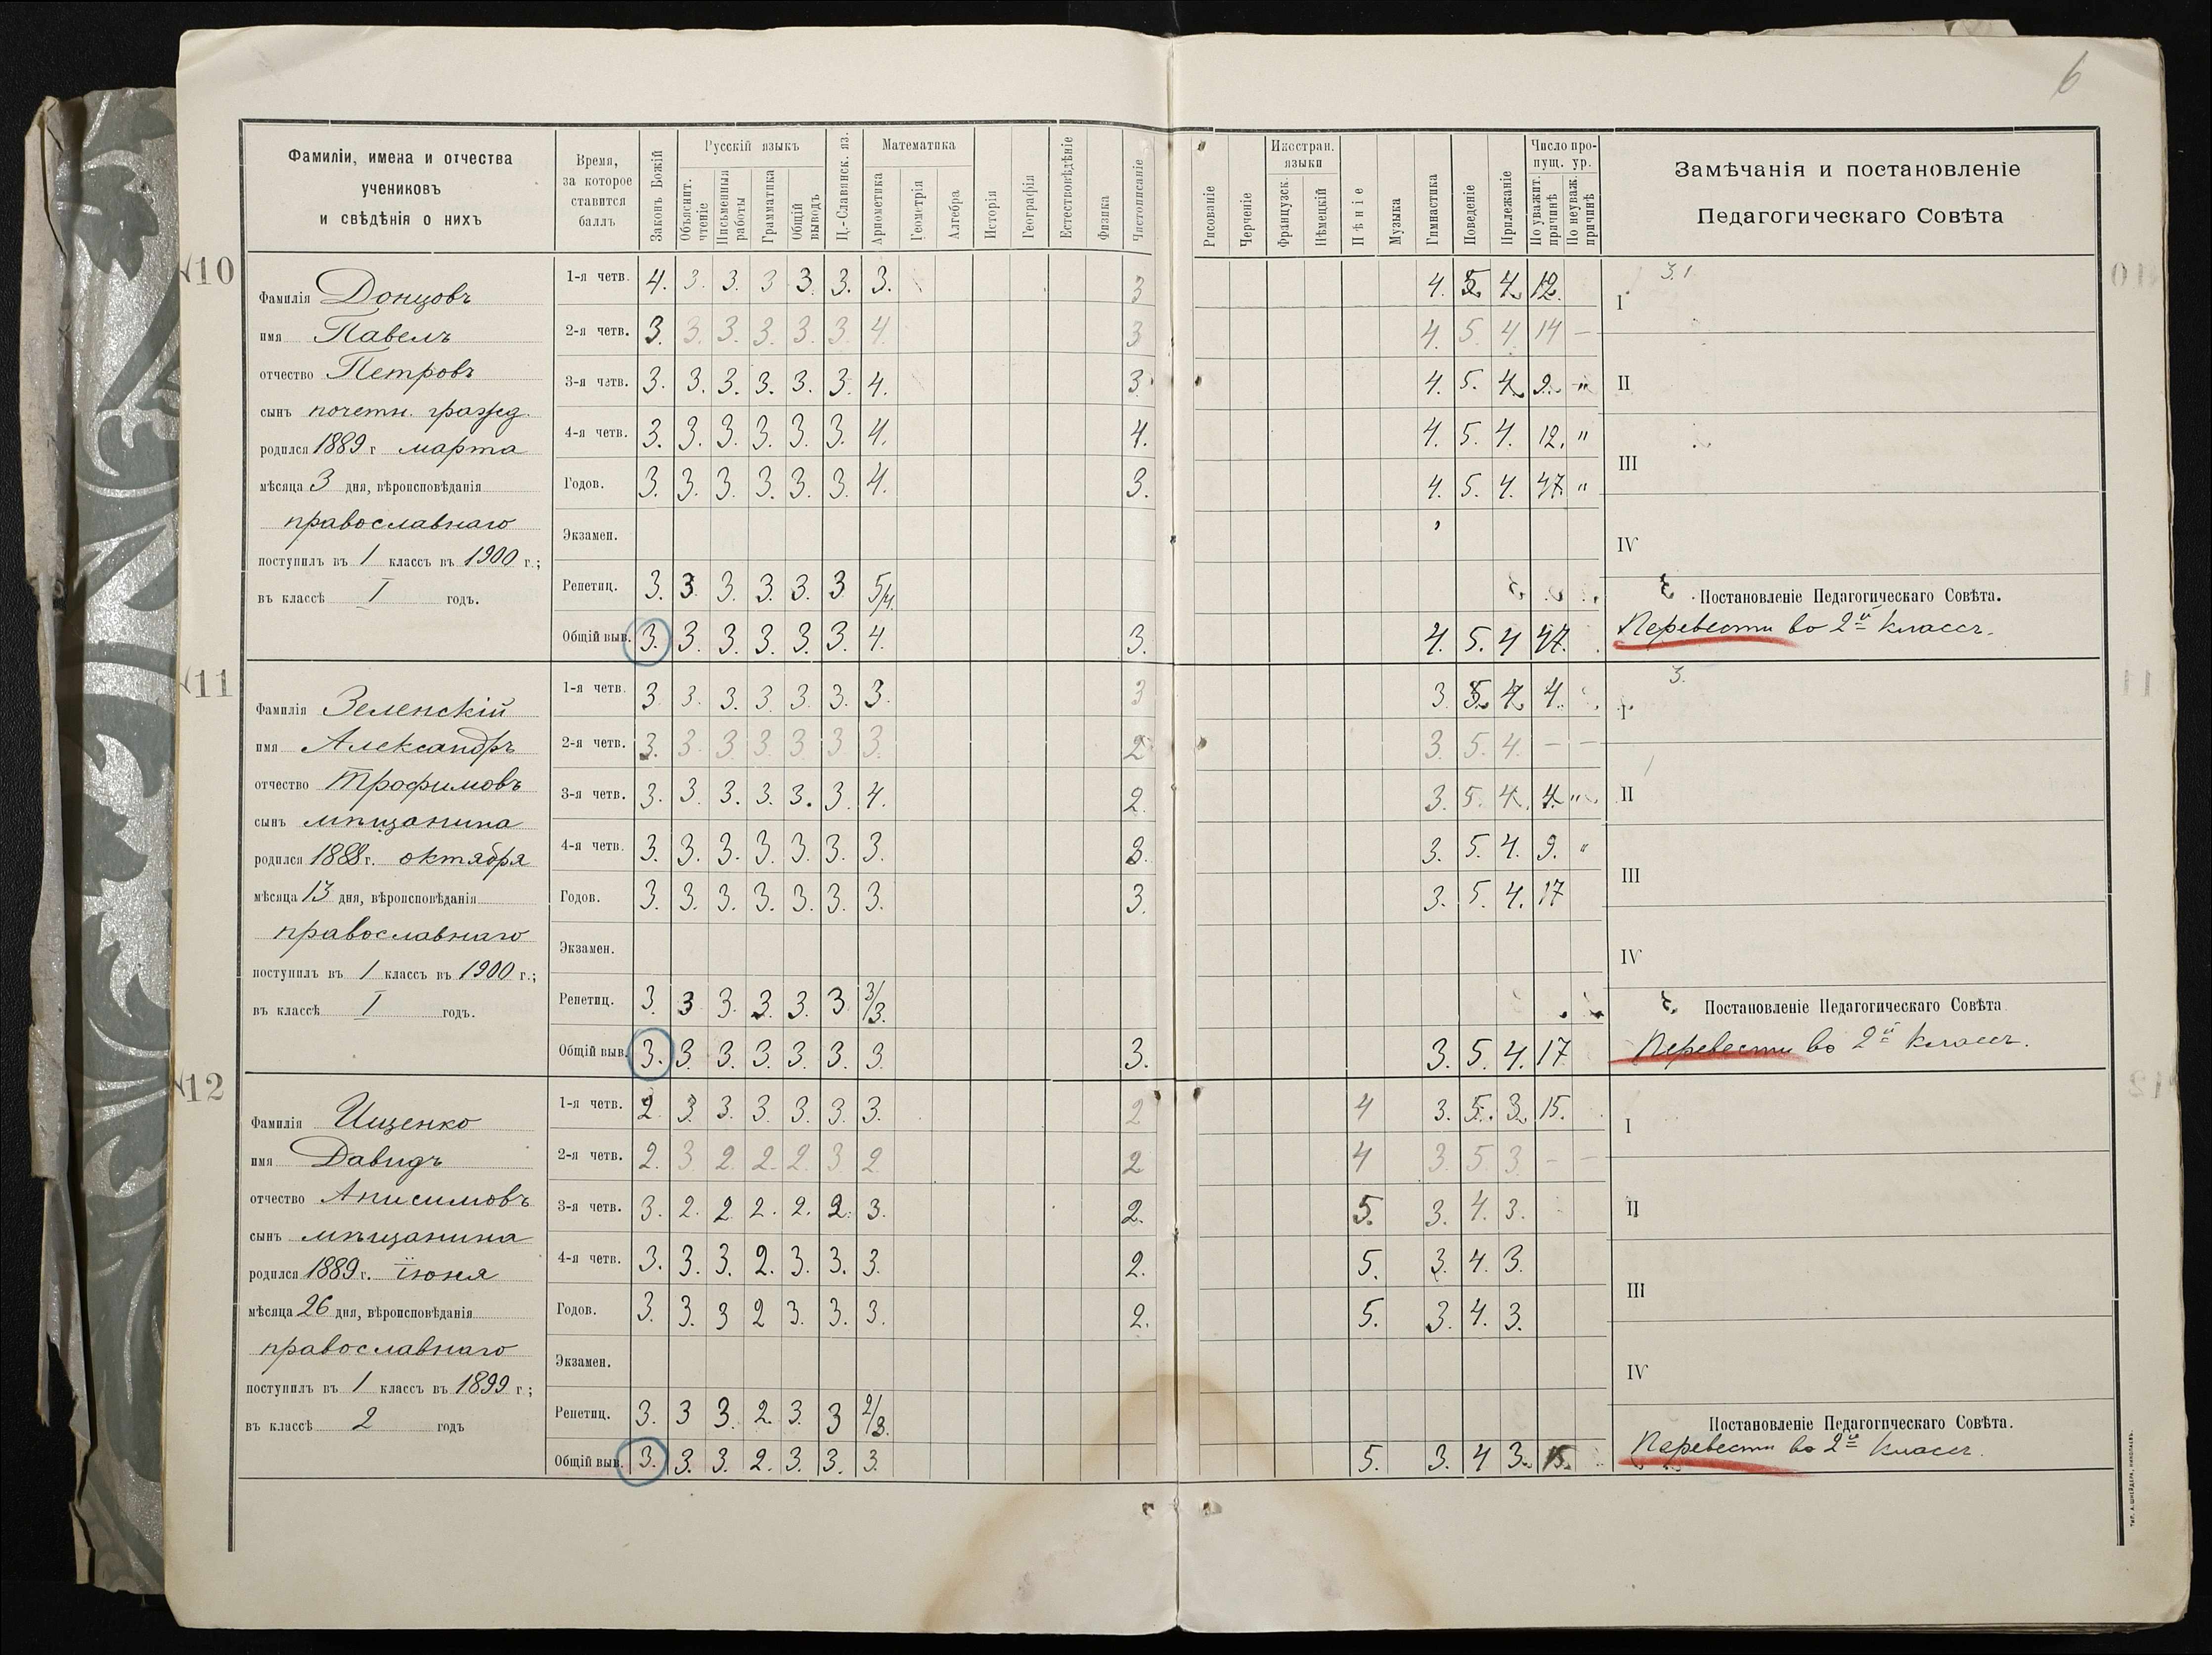 6
Фамиліи, имена и отчества
учениковъ
и свѣдѣнія о нихъ
Время,
за которое
ставится
баллъ
Законъ Божій
Русскій языкъ
Объяснит.
чтеніе
Письменныя
работы
Грамматика
Общій
выводъ
Ц.-Славянск. яз.
Математика
Ариѳметика
Геометрія
Алгебра
Исторія
Географія
Естествовѣдѣніе
Физика
Чистописаніе
Рисованіе
Черченіе
Иностран.
языки
Французск.
Нѣмецкій
Пѣніе
Музыка
Гимнастика
Поведеніе
Прилежаніе
Число про-
пущ. ур.
По уважит.
причинѣ
По неуваж.
причинѣ
Замѣчанія и постановленіе
Педагогическаго Совѣта
10
Фамилія Донцовъ
имя Павелъ
отчество Петровъ
сынъ почетн. гражд.
родился 1889 г марта
мѣсяца 3 дня, вѣроисповѣданія
православнаго
поступилъ въ 1 классъ въ 1900 г.;
въ классѣ I годъ.
1-я четв. 4. 3. 3. 3 3. 3. 3. 3 4. 5. 4. 12.
2-я четв. 3. 3. 3. 3. 3. 3. 4. 3 4. 5. 4. 14 —
3-я четв. 3. 3. 3. 3. 3. 3. 4. 3. 4. 5. 4. 9. "
4-я четв. 3. 3. 3. 3. 3. 3. 4. 4. 4. 5. 4. 12. "
Годов. 3. 3. 3. 3. 3. 3. 4. 3. 4. 5. 4. 47. "
Экзамен.
Репетиц. 3. 3. 3. 3. 3. 3 5/4.
Общій выв. 3. 3. 3. 3. 3. 3. 4. 3. 4. 5. 4 47.
I
II
III
IV
Постановленіе Педагогическаго Совѣта.
Перевести во 2й классъ.
11
Фамилія Зеленскій
имя Александръ
отчество Трофимовъ
сынъ мѣщанина
родился 1888 г. октября
мѣсяца 13 дня, вѣроисповѣданія
православнаго
поступилъ въ 1 классъ въ 1900 г.;
въ классѣ I годъ.
1-я четв. 3. 3. 3. 3. 3. 3. 3. 3 3. 5. 4. 4.
2-я четв. 3. 3. 3 3. 3 3 3. 2 3. 5. 4. — —
3-я четв. 3. 3. 3. 3. 3. 3. 4. 2. 3. 5. 4. 4. "
4-я четв. 3. 3. 3. 3. 3. 3. 3. 3. 3. 5. 4. 9. "
Годов. 3. 3. 3. 3. 3. 3. 3. 3. 3. 5. 4. 17
Экзамен.
Репетиц. 3. 3 3. 3. 3. 3 3/3.
Общій выв. 3. 3. 3. 3. 3. 3. 3. 3. 3. 5. 4. 17
I
II
III
IV
Постановленіе Педагогическаго Совѣта
Перевести во 2й классъ.
12
Фамилія Ищенко
имя Давидъ
отчество Анисимовъ
сынъ мѣщанина
родился 1889 г. іюня
мѣсяца 26 дня, вѣроисповѣданія
православнаго
поступилъ въ 1 классъ въ 1899 г;
въ классѣ 2 годъ
1-я четв. 2. 3. 3. 3. 3. 3. 3. 2 4 3. 5. 3. 15.
2-я четв. 2. 3 2. 2. 2. 3. 2. 2 4 3. 5. 3. — —
3-я четв. 3. 2. 2 2. 2. 2. 3. 2. 5. 3. 4. 3.
4-я четв. 3. 3. 3. 2. 3. 3. 3. 2. 5. 3. 4. 3.
Годов. 3. 3. 3 2 3. 3. 3. 2. 5. 3. 4. 3.
Экзамен.
Репетиц. 3. 3 3. 2. 3. 3 2/3.
Общій выв. 3. 3. 3. 2. 3. 3. 3. 5. 3. 4 3. 15.
I
II
III
IV
Постановленіе Педагогическаго Совѣта.
Перевести во 2й классъ.
ТИП. А. ШНЕЙДЕРА, НИКОЛАЕВЪ.